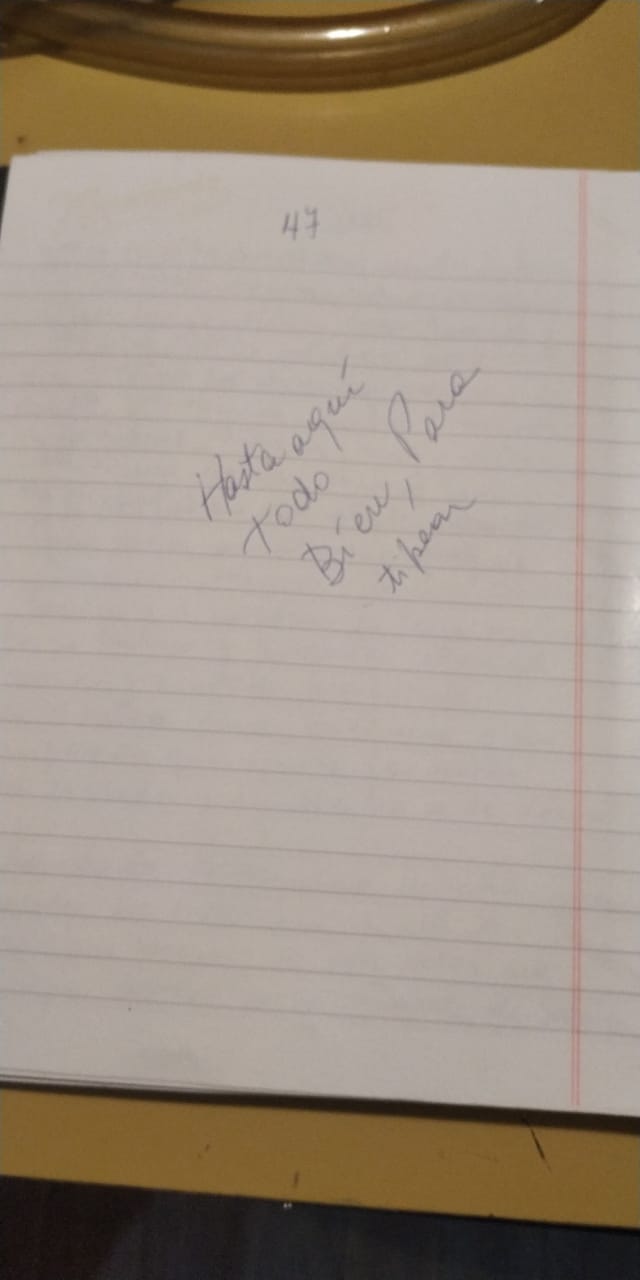 47
Hasta aquí
todo
Bien, Para
tipear